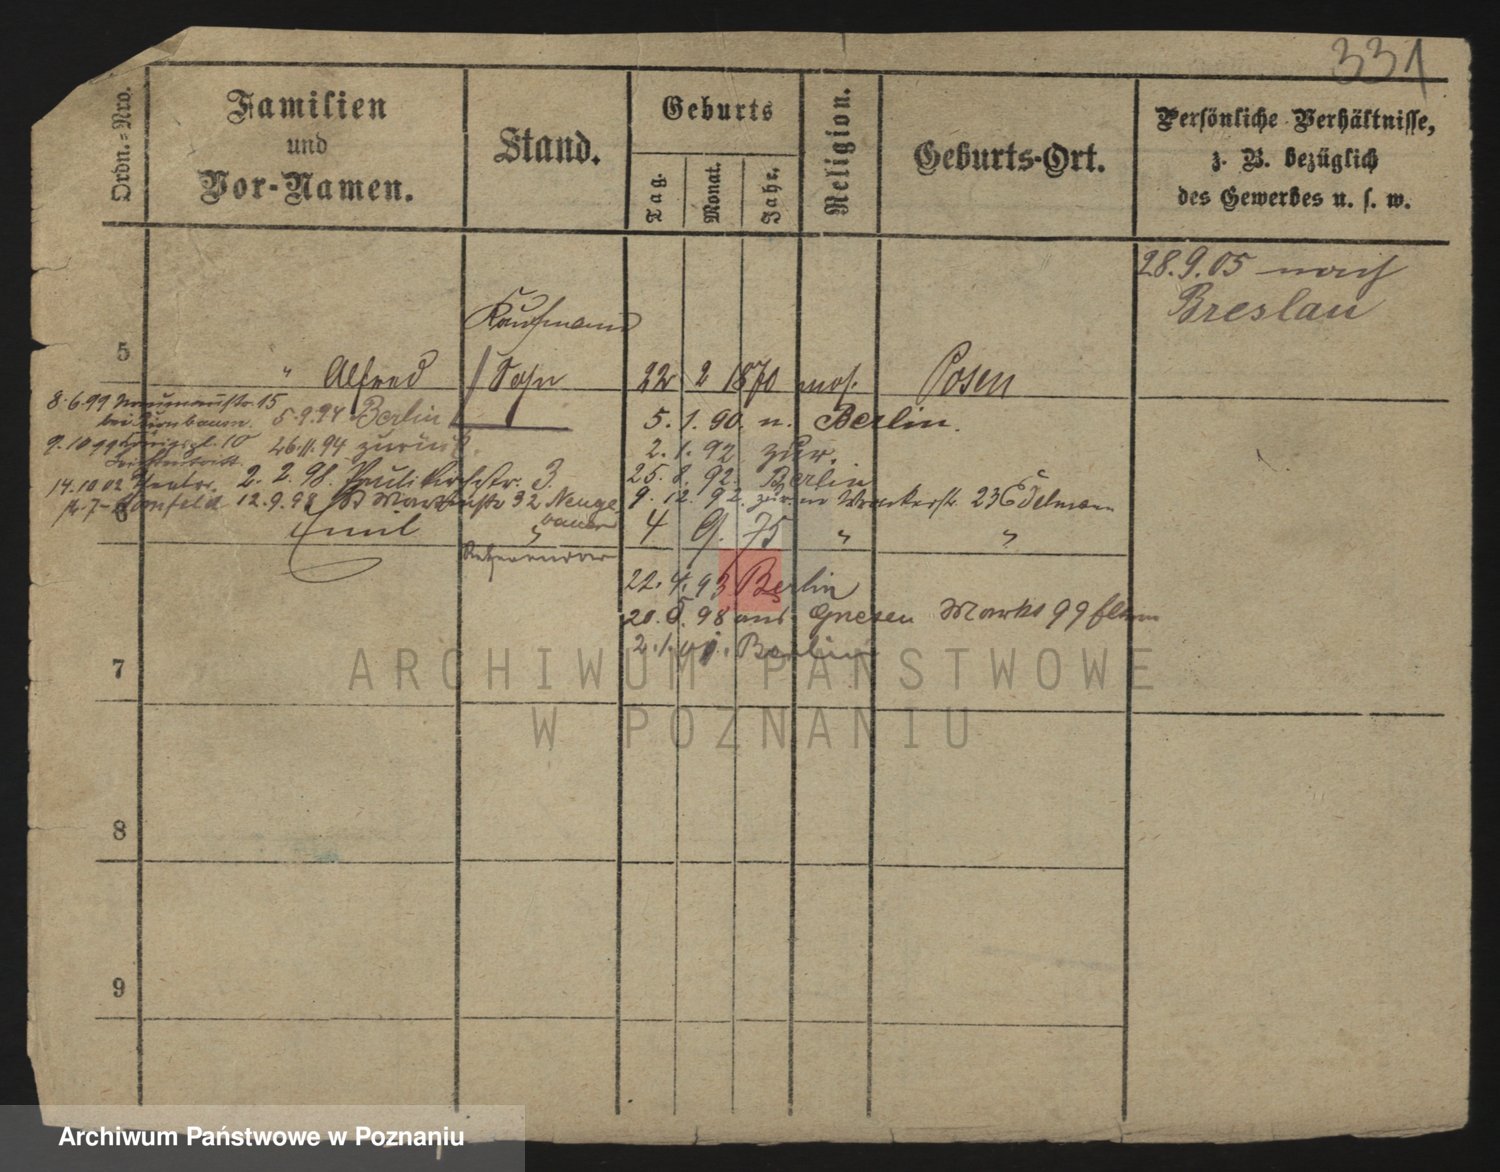 331
Ordn.-Nro.
Familien
und
Vor-Namen.
Stand.
Geburts
Tag.
Monat.
Jahr.
Religion.
Geburts-Ort.
Persönliche Verhältnisse,
z. B. bezüglich
des Gewerbes u. s. w.
28.9.05 nach
Breslau
Kaufmann
5
" Alfred Sohn 22 2 1870 mos. Posen
8.6.99 Naumannstr. 15
bei Birnbaum. 5.9.94 Berlin
5.1.90. n. Berlin.
9.10.99 Königspl. 10 26.11.94 zurück.
Lichtentritt
2.1.92 zur.
14.10.02 Theatr. 2.2.98. Paulikirchstr. 3.
25.8.92. Berlin
12.9.98 St Martinstr 32 Neuge
bauer
9.12.92. zur. Wronkerstr. 23 Edelmann
6
Emil " 4 9. 75 " "
Referendar
22.4.93 Berlin
20.5.98 aus Gnesen Markt 99
2.1.01. Berlin
7
8
9
ARCHIWUM PAŃSTWOWE
W POZNANIU
Archiwum Państwowe w Poznaniu